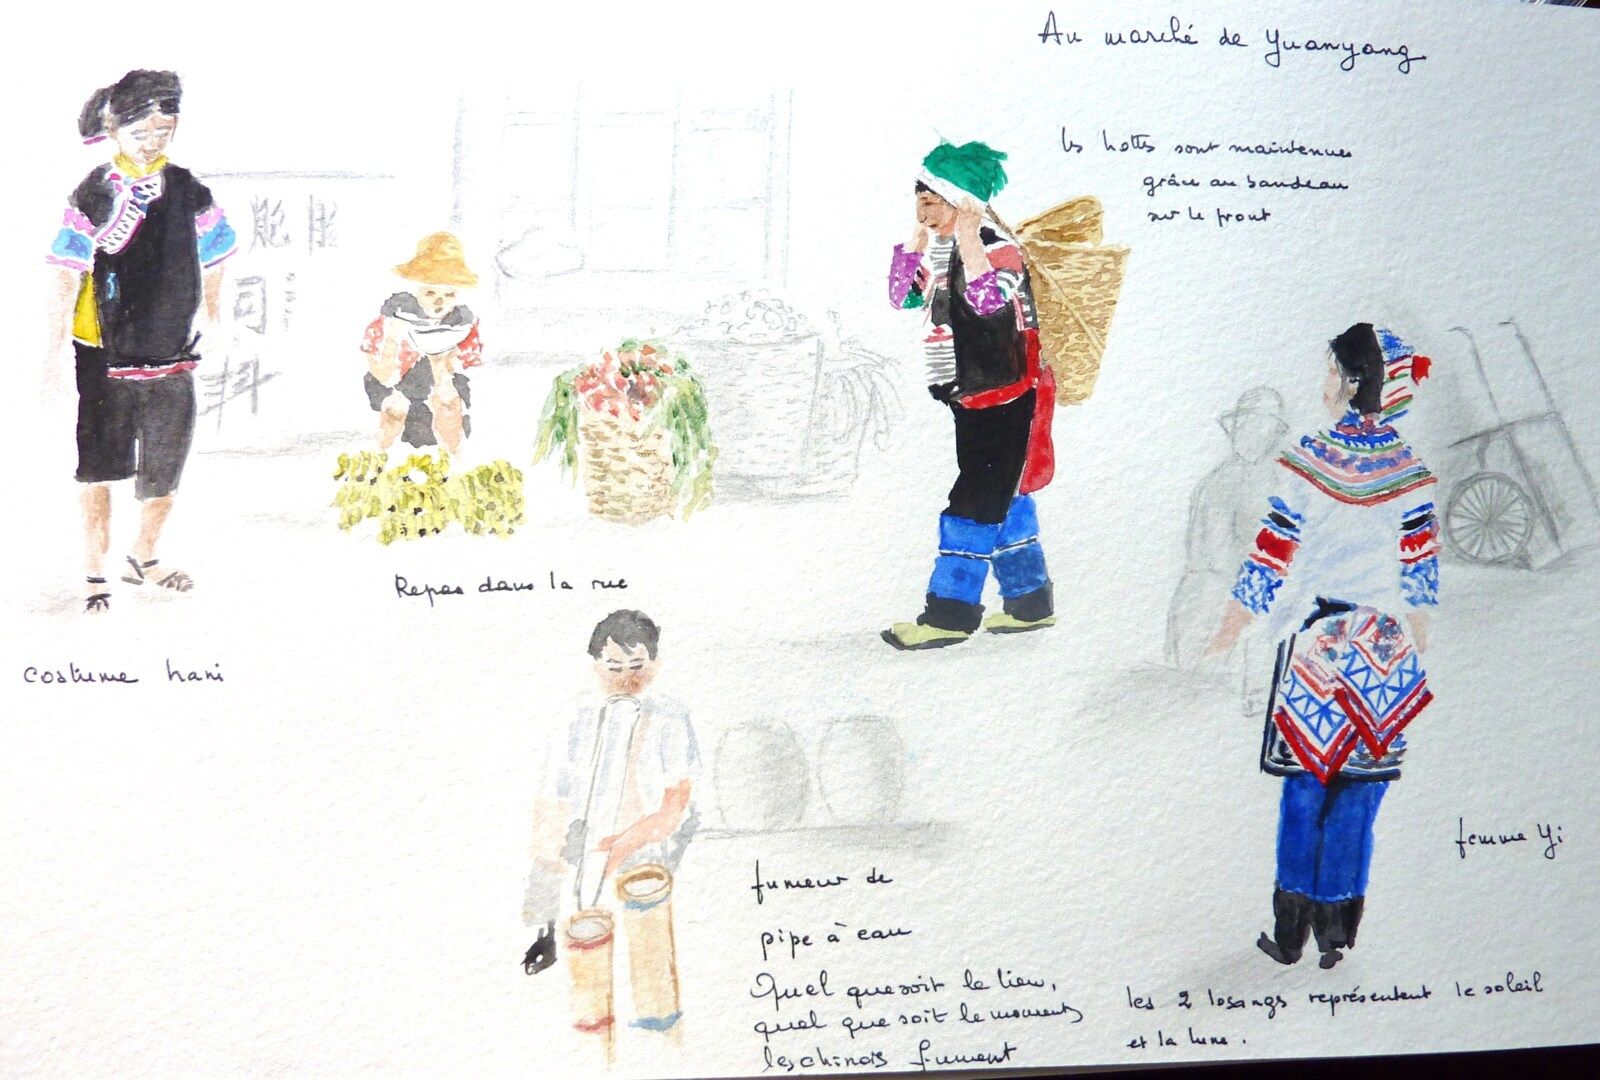 Au marché de Yuanyang
les hottes sont maintenues
grâce au bandeau
sur le front
Repas dans la rue
costume hani
femme Yi
fumeur de
pipe à eau
Quel que soit le lieu,
quel que soit le moment
les chinois fument
les 2 losanges représentent le soleil
et la lune.